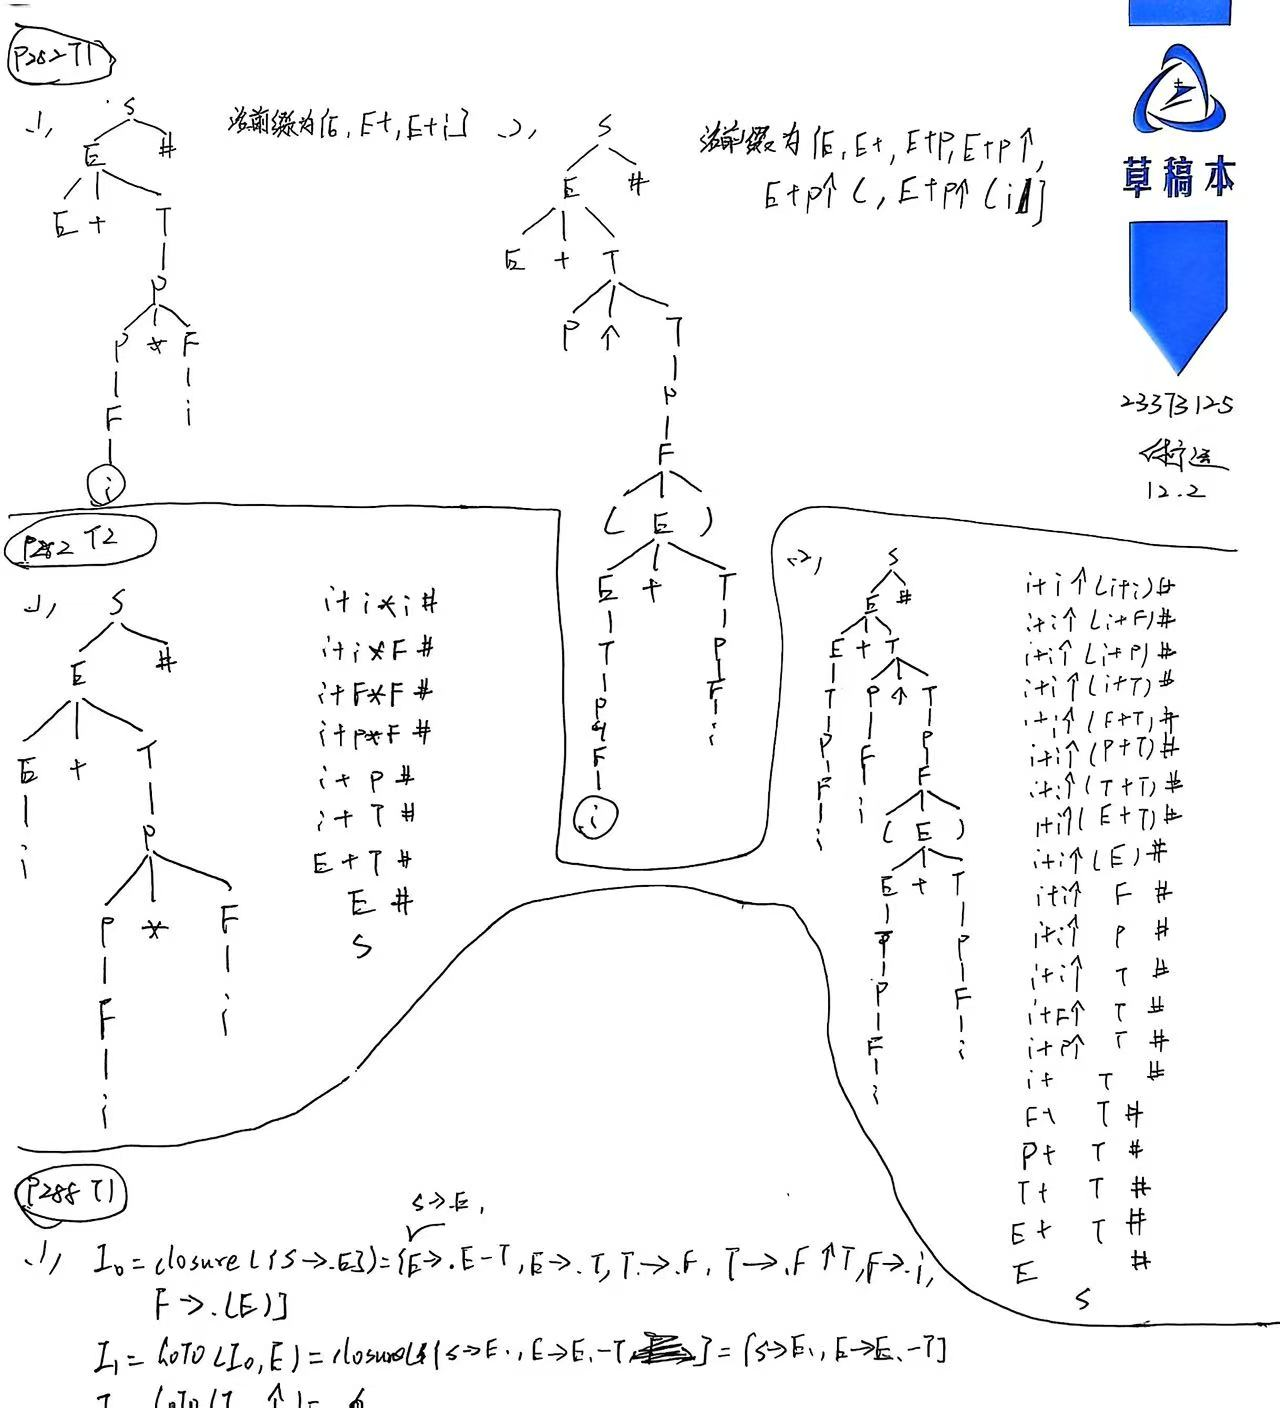 P282 T1
(1)
S
E #
E + T
P
P * F
F i
i
活前缀为{E, E+, E+i}
(2)
S
E #
E + T
P ↑ T
P
F
( E )
E + T
T P
P F
F i
i
活前缀为{E, E+, E+P, E+P↑,
E+P↑(, E+P↑(i}
草稿本
23373125
12.2
P282 T2
(1)
S
E #
E + T
i P
P * F
F i
i
i+i*i#
i+i*F#
i+F*F#
i+P*F#
i+P#
i+T#
E+T#
E#
S
(2)
S
E #
E + T
T P ↑ T
P F P
F i F
i ( E )
E + T
T P
P F
F i
i
i+i↑(i+i)#
i+i↑(i+F)#
i+i↑(i+P)#
i+i↑(i+T)#
i+i↑(F+T)#
i+i↑(P+T)#
i+i↑(T+T)#
i+i↑(E+T)#
i+i↑(E)#
i+i↑ F #
i+i↑ P #
i+i↑ T #
i+F↑ T #
i+P↑ T #
i+ T #
F+ T #
P+ T #
T+ T #
E+ T #
E #
S
P288 T1
S→.E,
(1) I₀=closure({S→.E})={E→.E-T, E→.T, T→.F, T→.F↑T, F→.i,
F→.(E)}
I₁=GOTO(I₀,E)=closure({S→E., E→E.-T})={S→E., E→E.-T}